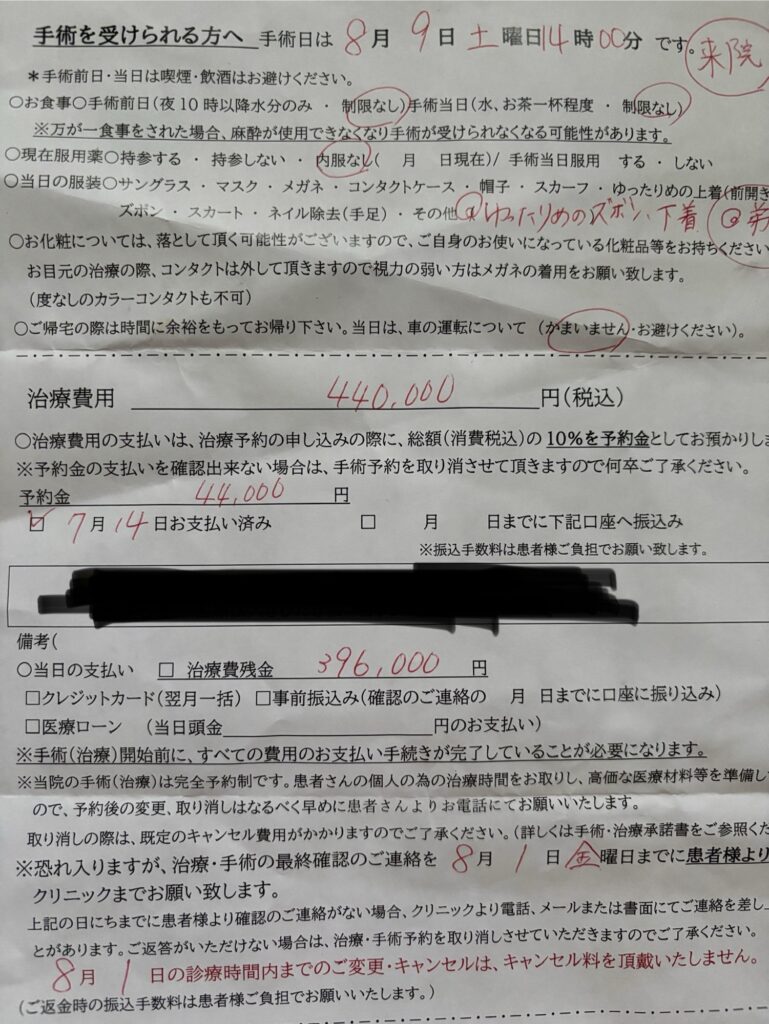 手術を受けられる方へ 手術日は 8月 9日 土曜日14時00分 です。 来院
＊手術前日・当日は喫煙・飲酒はお避けください。
○お食事○手術前日(夜10時以降水分のみ ・ 制限なし)手術当日(水、お茶一杯程度 ・ 制限なし)
※万が一食事をされた場合、麻酔が使用できなくなり手術が受けられなくなる可能性があります。
○現在服用薬○持参する ・ 持参しない ・ 内服なし( 月 日現在)/ 手術当日服用 する ・ しない
○当日の服装○サングラス ・ マスク ・ メガネ ・ コンタクトケース ・ 帽子 ・ スカーフ ・ ゆったりめの上着(前開き
ズボン ・ スカート ・ ネイル除去(手足) ・ その他 ゆったりめのズボン、下着
○お化粧については、落として頂く可能性がございますので、ご自身のお使いになっている化粧品等をお持ちください
お目元の治療の際、コンタクトは外して頂きますので視力の弱い方はメガネの着用をお願い致します。
(度なしのカラーコンタクトも不可)
○ご帰宅の際は時間に余裕をもってお帰り下さい。当日は、車の運転について (かまいません・お避けください)。
治療費用 440,000 円(税込)
○治療費用の支払いは、治療予約の申し込みの際に、総額(消費税込)の 10%を予約金としてお預かりしま
※予約金の支払いを確認出来ない場合は、手術予約を取り消させて頂きますので何卒ご了承ください。
予約金 44,000 円
☑ 7月 14日お支払い済み □ 月 日までに下記口座へ振込み
※振込手数料は患者様ご負担でお願い致します。
備考(
○当日の支払い □ 治療費残金 396,000 円
□クレジットカード(翌月一括) □事前振込み(確認のご連絡の 月 日までに口座に振り込み)
□医療ローン (当日頭金 円のお支払い)
※手術(治療)開始前に、すべての費用のお支払い手続きが完了していることが必要になります。
※当院の手術(治療)は完全予約制です。患者さんの個人の為の治療時間をお取りし、高価な医療材料等を準備し
ので、予約後の変更、取り消しはなるべく早めに患者さんよりお電話にてお願いいたします。
取り消しの際は、既定のキャンセル費用がかかりますのでご了承ください。(詳しくは手術・治療承諾書をご参照くだ
※恐れ入りますが、治療・手術の最終確認のご連絡を 8月 1日 金曜日までに患者様より
クリニックまでお願い致します。
上記の日にちまでに患者様より確認のご連絡がない場合、クリニックより電話、メールまたは書面にてご連絡を差し
とがあります。ご返答がいただけない場合は、治療・手術予約を取り消しさせていただきますのでご了承ください。
8月 1日の診療時間内までのご変更・キャンセルは、キャンセル料を頂戴いたしません。
(ご返金時の振込手数料は患者様ご負担でお願いいたします。)